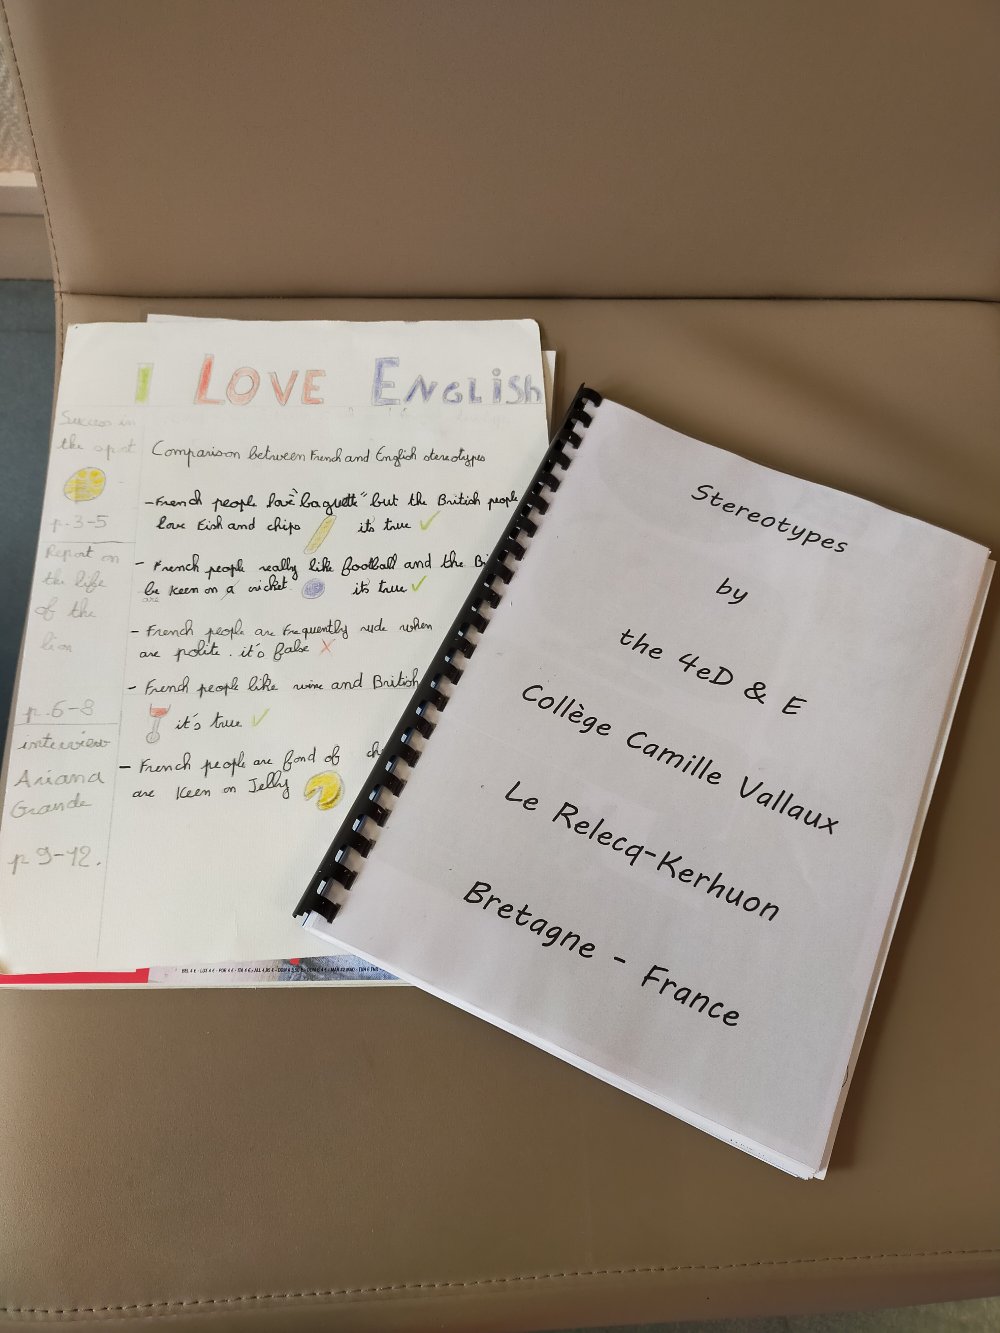 I LOVE ENGLISH
Success in
the sport
p.3-5
Report on
the life
of the
lion
p.6-8
interview
Ariana
Grande
p 9-12.
Comparison between French and English stereotypes
- French people love "baguette" but the British people
love Fish and chips it's true
- French people really like football and the
be keen on a cricket it's true
are
- French people are frequently rude when
are polite. it's false
- French people like wine and British
it's true
- French people are fond of
are keen on Jelly
Stereotypes
by
the 4eD & E
Collège Camille Vallaux
Le Relecq-Kerhuon
Bretagne - France